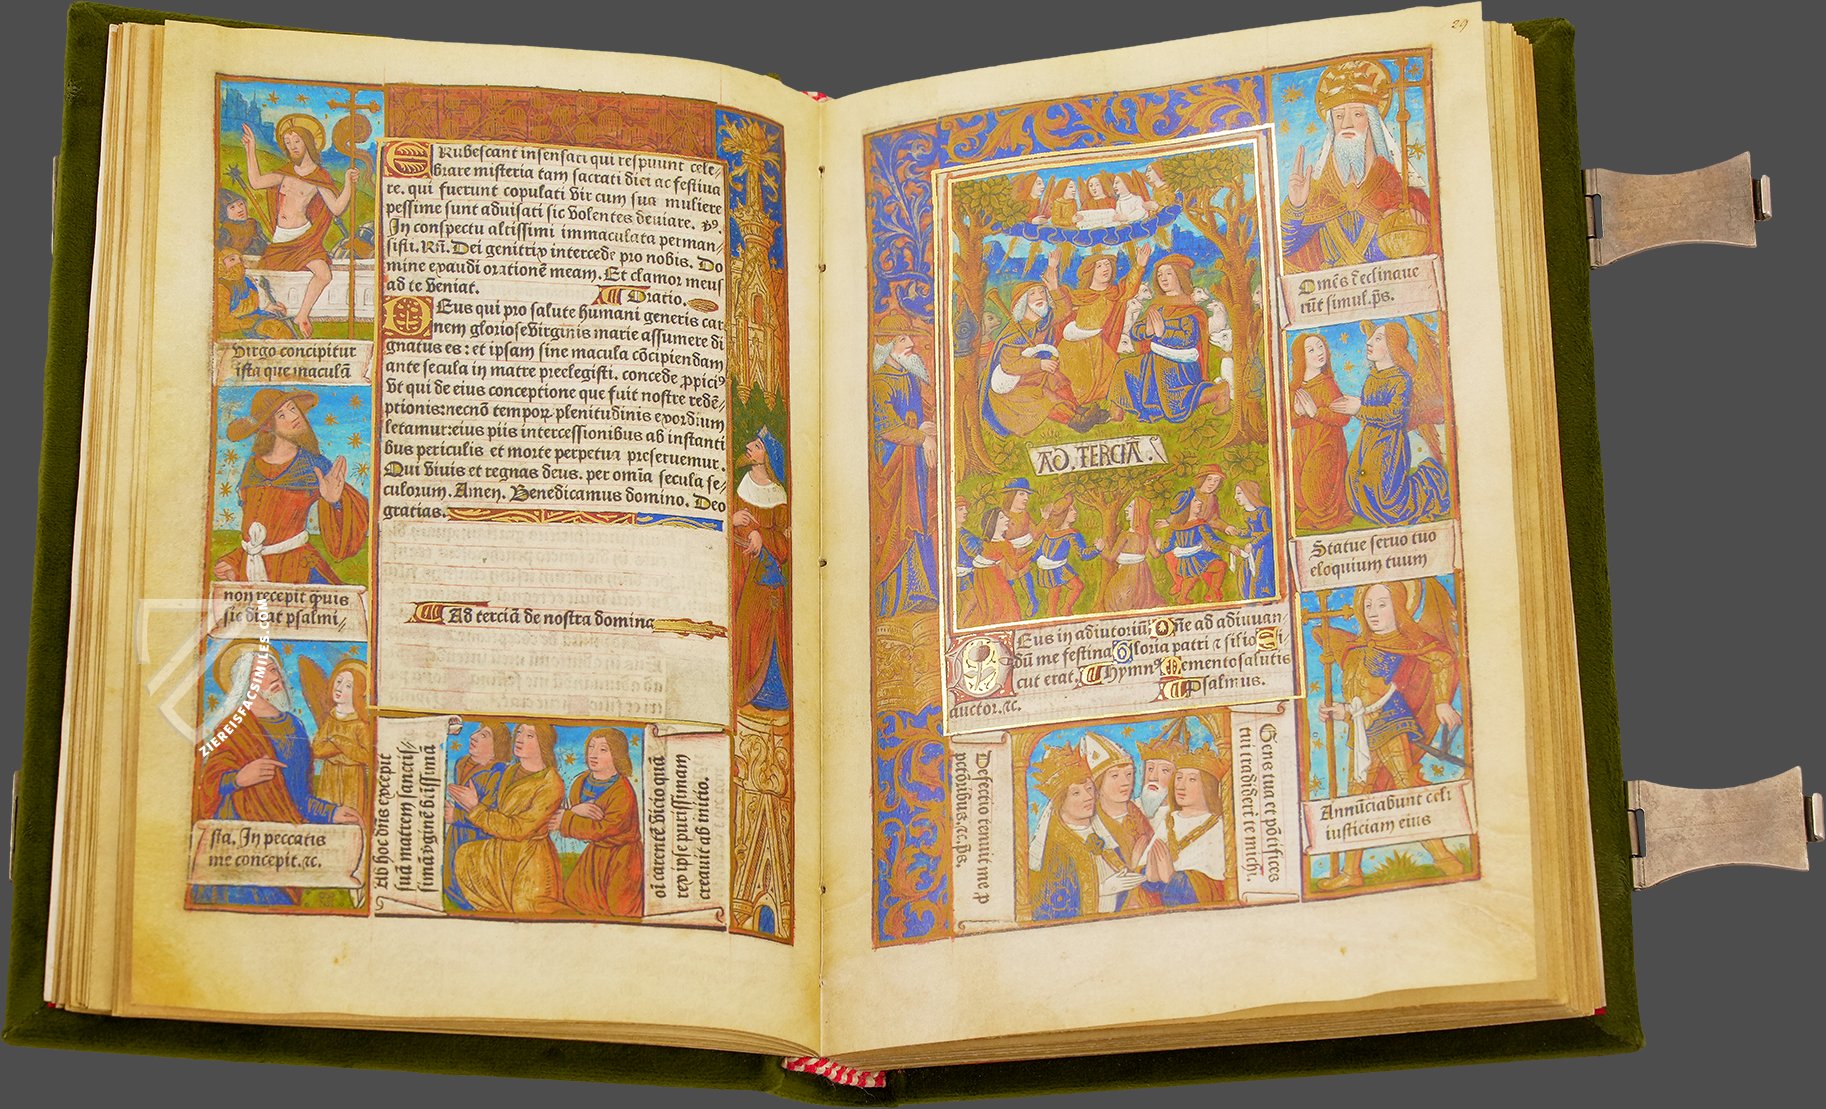 ERubescant insensati qui respuunt cele-
brare misteria tam sacrati diei ac festiua
te. qui fuerunt copulati vir cum sua muliere
pessime sunt aduisati sic volentes deuiare. v9.
In conspectu altissimi immaculata perman-
sisti. Rñ. Dei genitrix intercede pro nobis. Do
mine exaudi orationē meam. Et clamor meus
ad te veniat. Oratio.
DEus qui pro salute humani generis car
nem gloriose virginis marie assumere di
gnatus es: et ipsam sine macula cōcipiendam
ante secula in matre preelegisti. concede ꝓpici9
vt qui de eius conceptione que fuit nostre redē-
ptionis: necnō tempoꝝ plenitudinis exordium
letamur: eius piis intercessionibus ab instanti
bus periculis et morte perpetua preseruemur.
Qui viuis et regnas deus. per omīa secula se-
culorum. Amen. Benedicamus domino. Deo
gratias.
Ad terciā de nostra domina
Virgo concipitur
ista que maculā
non recepit q̄uis
sic dicat psalmi//
sta. In peccatis
me concepit. ⁊c.
Ab hoc dn̄s excepit
suā matrem sanctis/
simā v̓ginē b̄tissimā
oi carentē vicio quā
rex ipse purissimam
creauit ab initio.
29
AD. TERCIĀ.
DEus in adiutoriū Dn̄e ad adiuuan
dū me festina Gloria patri ⁊ filio Si
cut erat. Hymn9 Memento salutis
auctor. ⁊c. Psalmus.
Omēs declinaue
rūt simul. p̄s.
Statue seruo tuo
eloquium tuum
Annūciabunt celi
iusticiam eius
Defectio tenuit me p
pctōribus. ⁊c. p̄s.
Gens tua et pōtifices
tui tradiderūt te michi.
ZIEREISFACSIMILES.COM